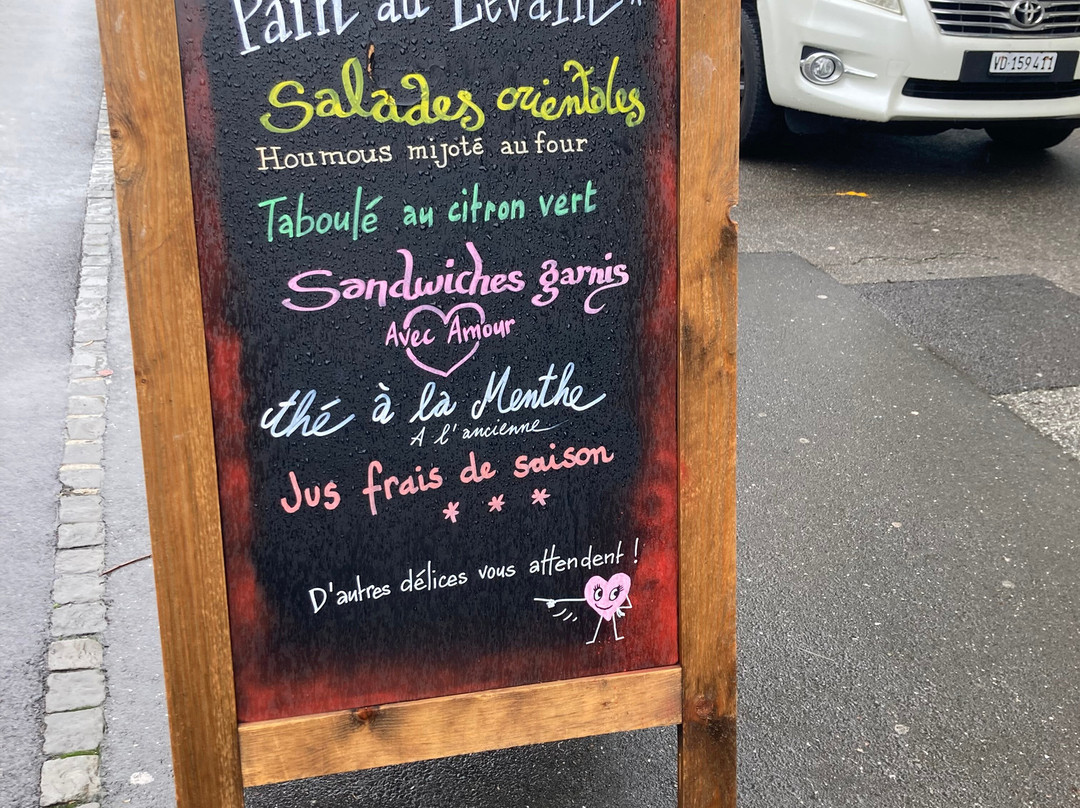 Pain au Levain
Salades orientales
Houmous mijoté au four
Taboulé au citron vert
Sandwiches garnis
Avec Amour
thé à la Menthe
A l'ancienne
Jus frais de saison
* * *
D'autres délices vous attendent !
VD·159411